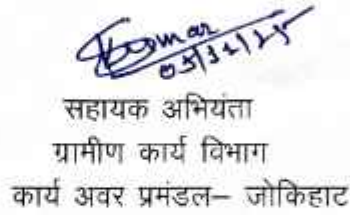 Kumar
सहायक अभियंता
ग्रामीण कार्य विभाग
कार्य अवर प्रमंडल– जोकिहाट